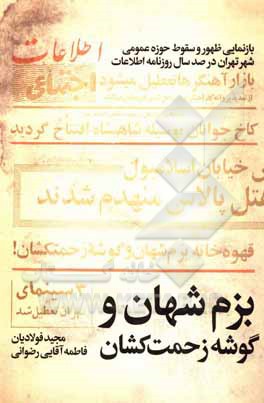 بازنمایی ظهور و سقوط حوزه عمومی
شهر تهران در صد سال روزنامه اطلاعات
اطلاعات
اجتماعی
بازار آهنگرها تعطیل میشود
کاخ جوانان بوسیله شاهنشاه افتتاح گردید
خیابان اسلامبول
هتل پالاس منهدم شدند
قهوه‌خانه بزم شهان و گوشه زحمتکشان!
سینمای
تهران تعطیل شد
بزم شهان و
گوشه زحمت‌کشان
مجید فولادیان
فاطمه آقایی رضوانی